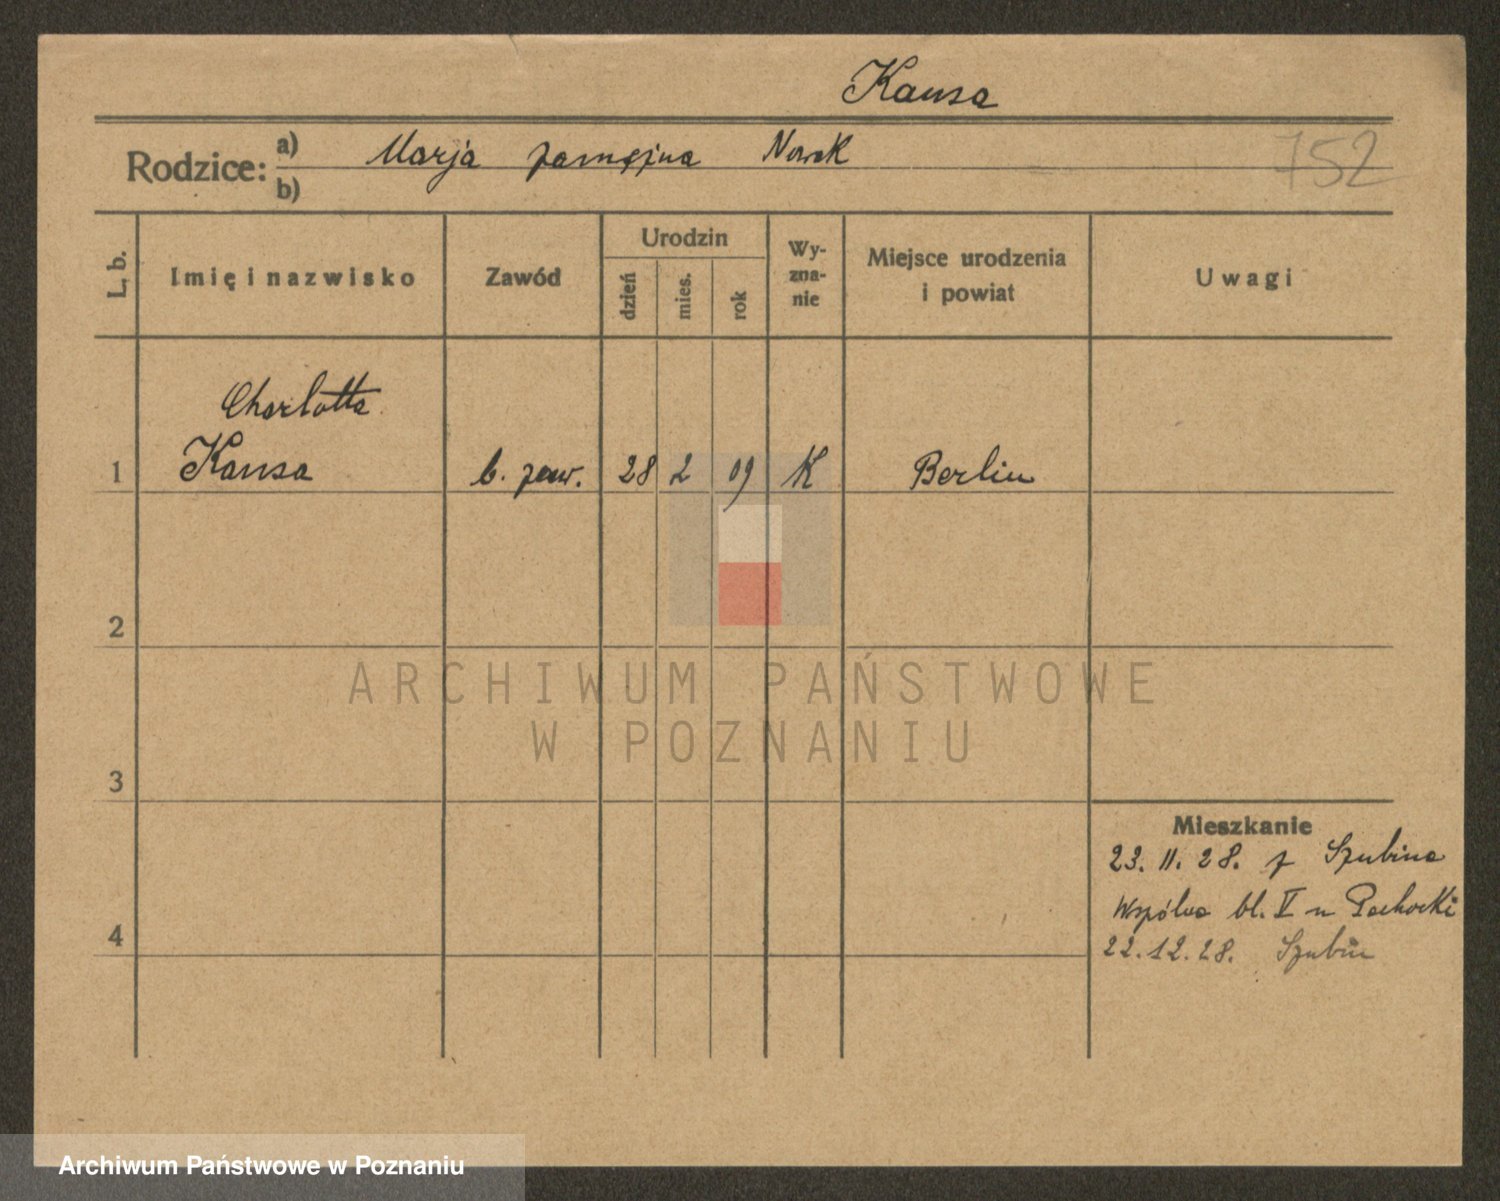 Kansa
Rodzice: a) Marja zamężna Nowak
b)
752
L. b. Imię i nazwisko Zawód Urodzin dzień mies. rok Wy-zna-nie Miejsce urodzenia i powiat Uwagi
Charlotta
1 Kansa b. zaw. 28 2 09 K Berlin
2
3
4
Mieszkanie
23. 11. 28. z Szubina
Wspólna bl. V u Pachocki
22. 12. 28. Szubin
ARCHIWUM PAŃSTWOWE
W POZNANIU
Archiwum Państwowe w Poznaniu